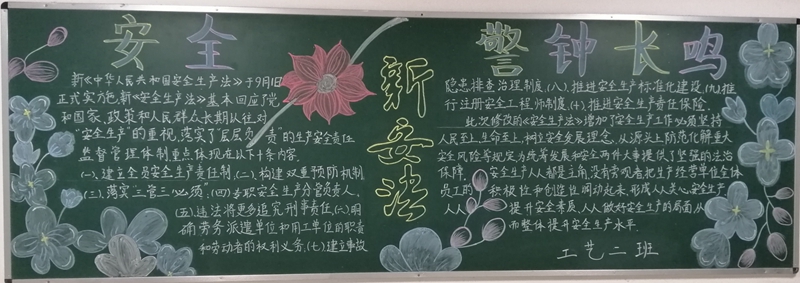 安全
新《中华人民共和国安全生产法》于9月1日
正式实施,新《安全生产法》基本回应了党
和国家、政策和人民群众长期以往对
"安全生产"的重视,落实了"层层负责"的生产安全责任
监督管理体制重点体现在以下十条内容.
(一)、建立全员安全生产责任制,(二)、构建双重预防机制
(三)、落实"三管三必须".(四)专职安全生产分管负责人,
(五).违法将更多追究刑事责任,(六).明
确劳务派遣单位和用工单位的职责
和劳动者的权利义务,(七).建立事故
新安法
警钟长鸣
隐患排查治理制度,(八)、推进安全生产标准化建设,(九)推
行注册安全工程师制度,(十)、推进安全生产责任保险.
此次修改的《安全生产法》增加了安全生产工作必须坚持
人民至上,生命至上,树立安全发展理念,从源头上防范化解重大
安全风险等规定为统筹发展和安全两件大事提供了坚强的法治
保障,安全生产人人都是主角,没有旁观者把生产经营单位全体
员工的积极性和创造性调动起来,形成人人关心安全生产
人人提升安全素质、人人做好安全生产的局面从
而整体提升安全生产水平.
工艺二班